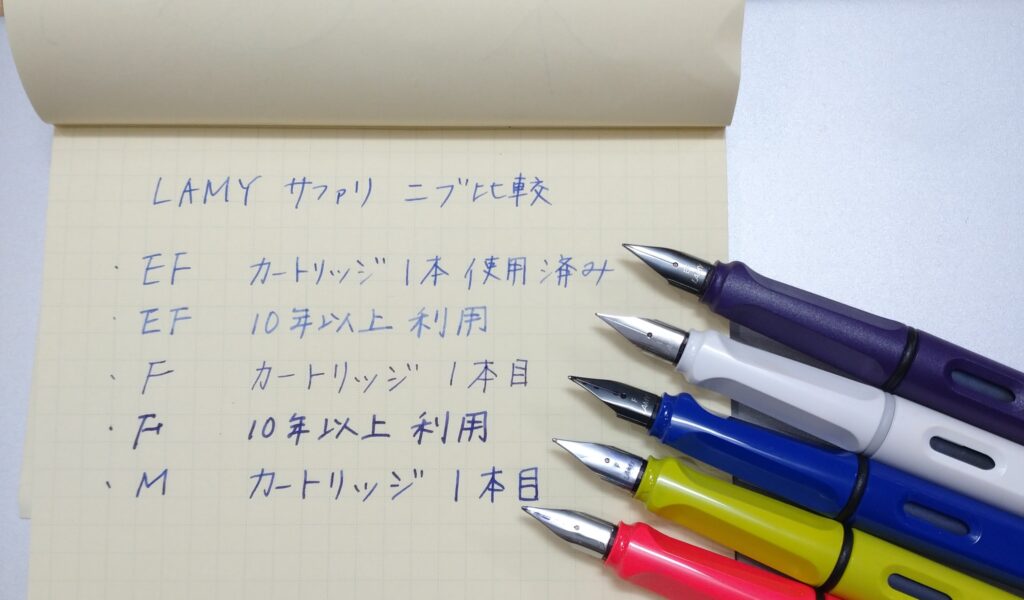 LAMY サファリ ニブ比較
・ EF カートリッジ 1本 使用済み
・ EF 10年以上 利用
・ F カートリッジ 1本目
・ F 10年以上 利用
・ M カートリッジ 1本目